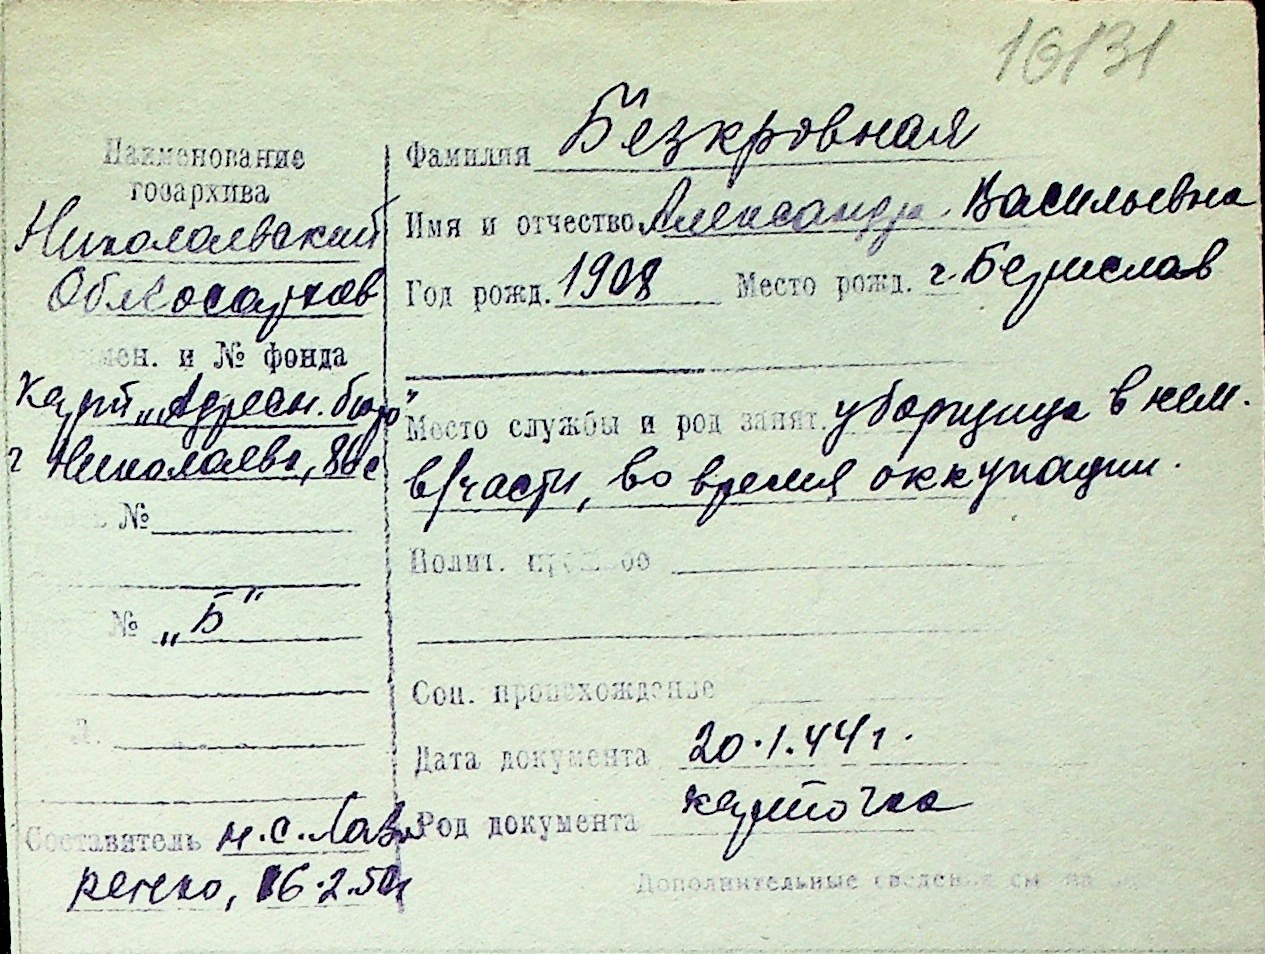 16131
Наименование
госархива
Николаевский
Облгосархив
имен. и № фонда
карт. „Адресн. бюро"
г Николаева,
№
№ „Б"
Л.
Составитель М.С. Лав
ренко, 16.2.50г
Фамилия Безкровная
Имя и отчество Александра Васильевна
Год рожд. 1908 Место рожд. г. Берислав
Место службы и род занят. уборщица в нем.
в/части, во время оккупации.
Полит. прошлое
Соц. происхождение
Дата документа 20.1.44г.
Род документа карточка
Дополнительные сведения см. на